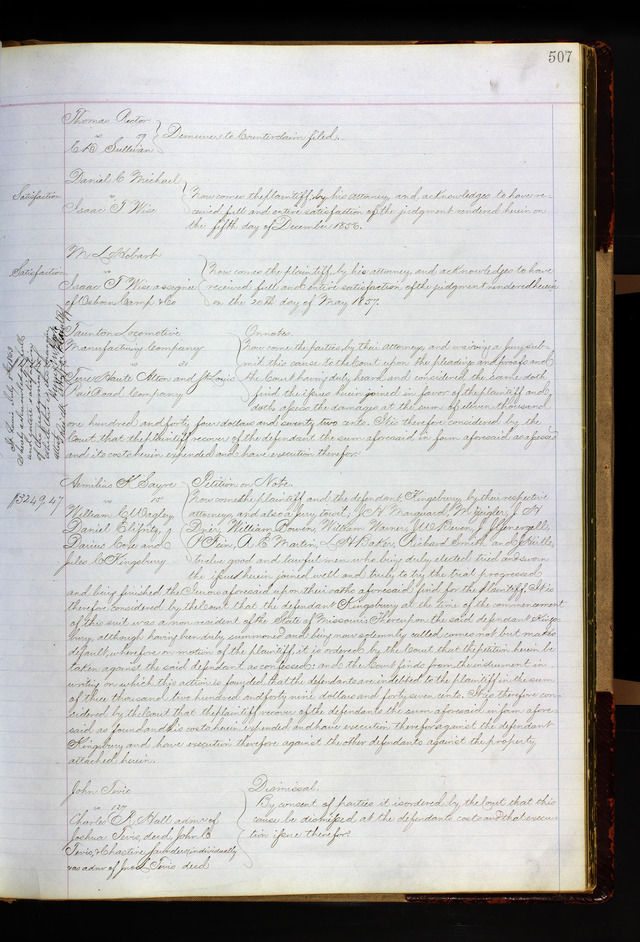 507
Thomas Rector
vs 59
C D Sullivan
Demurrer to Counterclaim filed.
Daniel C Michael
Satisfaction vs
Isaac T Wise
Now comes the plaintiff, by his attorney, and acknowledges to have re-
ceived full and entire satisfaction of the judgment rendered herein on
the fifth day of December 1856.
M L Hobart
Satisfaction vs
Isaac T Wise assignee
of Osborn Camp & Co
Now comes the plaintiff by his attorney and acknowledges to have
received full and entire satisfaction of the judgment rendered herein
on the 20th day of May 1857.
Taunton Locomotive
Manufacturing Company
vs 21
Terre Haute Alton and St Louis
Rail Road Company
On notes
Now come the parties by their attorneys, and waiving a jury sub-
mit this cause to the Court upon the pleadings and proofs and
the Court having duly heard and considered the same doth
find the issues herein joined in favor of the plaintiff and
doth assess the damages at the sum of eleven thousand
one hundred and forty four dollars and seventy two cents. It is therefore considered by the
Court that the plaintiff recover of the defendant the sum aforesaid in form aforesaid assessed
and its costs herein expended and have execution therefor.
$3249.47
Aemilius K Sayre
vs 15
William C Wagley
Daniel Elignty
Darius Case and
Jules C Kingsbury
Petition on Note.
Now come the plaintiff and the defendant, Kingsbury, by their respective
attorneys, and also a jury towit, J H Marquard, M Zeigler, J H
Davis, William Bowen, William Warner, J W Bacon, J
P Finn, A E Martin, L H Baker, Richard Smith and J Neille,
twelve good and lawful men who being duly elected tried and sworn
the issues herein joined well and truly to try the trial progressed
and being finished the Jurors aforesaid upon their oaths aforesaid find for the plaintiff. It is
therefore considered by the Court that the defendant Kingsbury at the time of the commencement
of this suit was a non resident of the State of Missouri. Thereupon the said defendant Kings-
bury, although having been duly summoned and being now solemnly called comes not but makes
default, wherefore on motion of the plaintiff it is ordered by the Court that the petition herein be
taken against the said defendant as confessed: and the Court finds from the instrument in
writing on which this action is founded that the defendants are indebted to the plaintiff in the sum
of three thousand two hundred and forty nine dollars and forty seven cents. It is therefore con-
sidered by the Court that the plaintiff recover of the defendants the sum aforesaid in form afore-
said as found and his costs herein expended and have execution therefor against the defendant
Kingsbury and have execution therefor against the other defendants against the property
attached herein.
John Tevis
vs 129
Charles R Hall admr of
Joshua Tevis decd John B
Tevis, & Chastine Saunders, individually
& as admr of Joshua Tevis decd
Dismissal.
By consent of parties it is ordered by the Court that this
cause be dismissed at the defendants costs and that execu-
tion issue therefor.